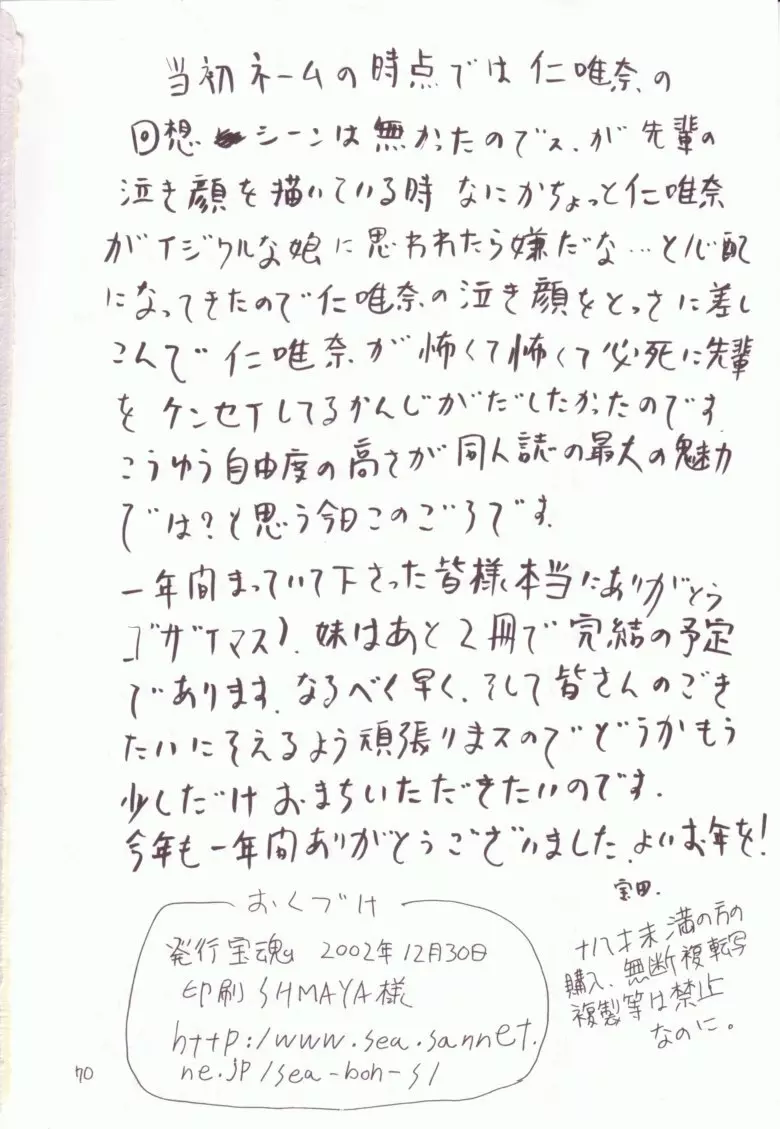 当初ネームの時点では仁唯奈の
回想シーンは無かったのでス.が先輩の
泣き顔を描いている時なにかちょっと仁唯奈
がイジワルな娘に思われたら嫌だな…と心配
になってきたので仁唯奈の泣き顔をとっさに差し
こんで仁唯奈が怖くて怖くて必死に先輩
をケンセイしてるかんじがだしたかったのです
こうゆう自由度の高さが同人誌の最大の魅力
では?と思う今日このごろです.
一年間まっていて下さった皆様本当にありがとう
ゴザイマス).妹はあと2冊で完結の予定
であります.なるべく早く.そして皆さんのごき
たいにそえるよう頑張りまスのでどうかもう
少しだけおまちいただきたいのです.
今年も一年間ありがとうございました.よいお年を!
宝田.
十八才未満の方の
購入、無断複転写
複製等は禁止
なのに。
おくづけ
発行宝魂 2002年12月30日
印刷 SHMAYA様
http:/www.sea.sannet.
ne.jp/sea-boh-s/
70